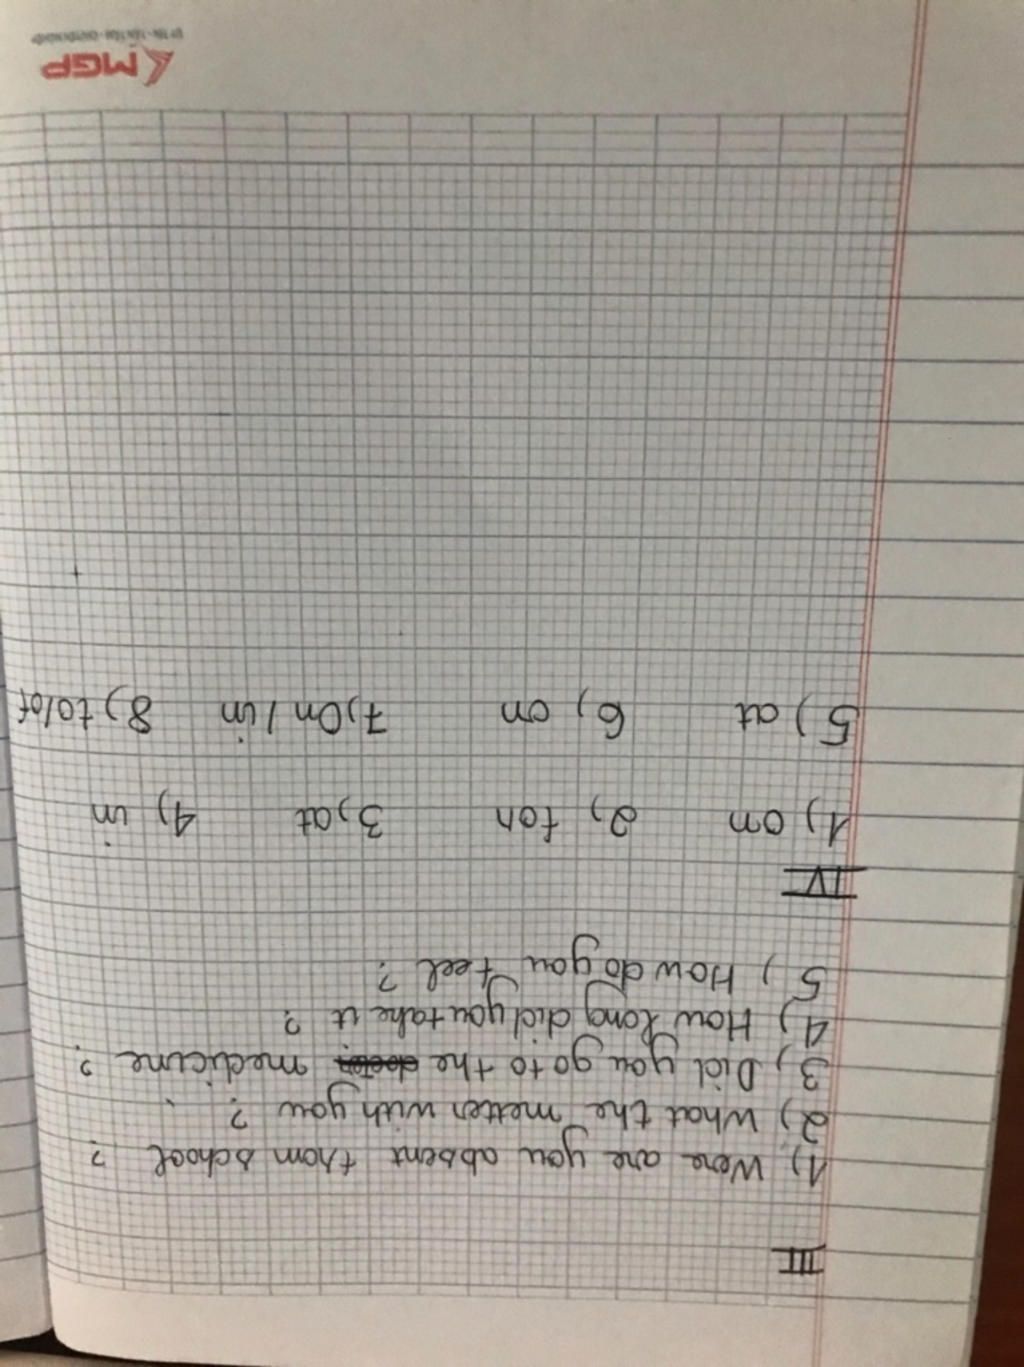 III
1) Were are you absent from school ?
2) What the metter with you ?
3) Did you go to the doctor medicine ?
4) How long did you take it ?
5) How do you feel ?
IV
1) on 2) for 3) at 4) in
5) at 6) on 7) On / in 8) to/of
MGP